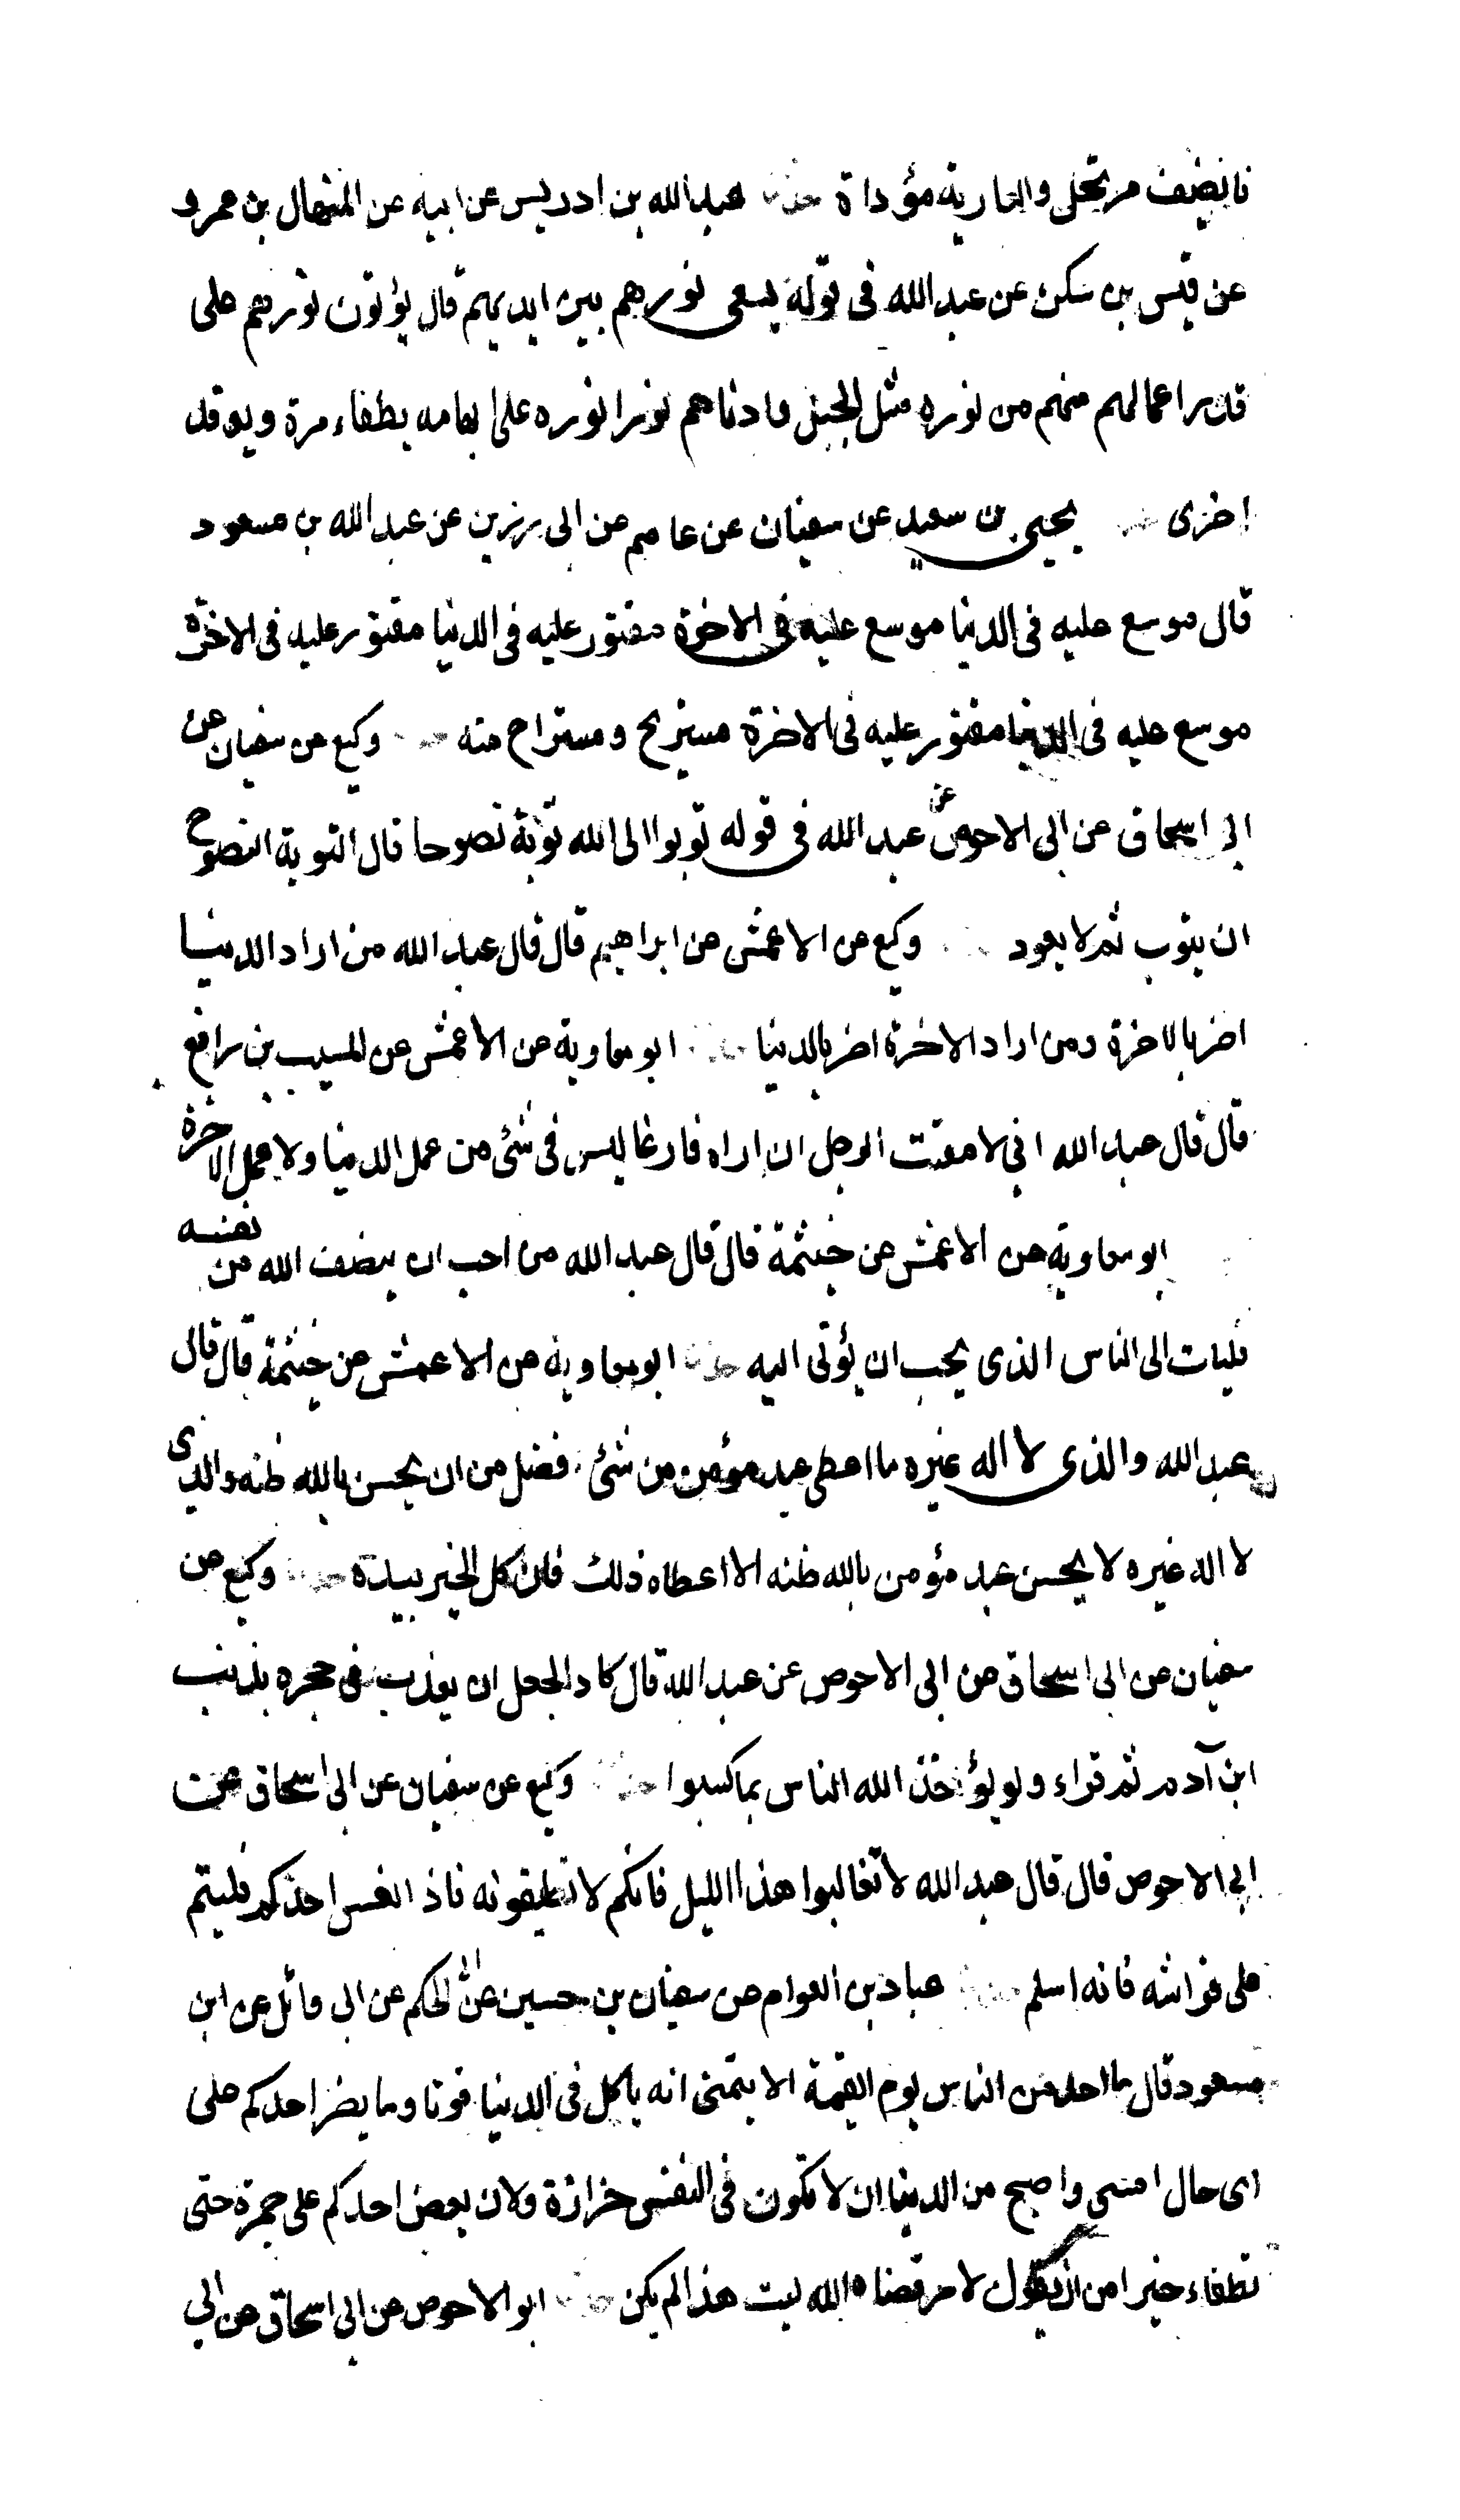 فالضيف مرتحل والعارية مؤداة حدثنا عبد الله بن ادريس عن ابيه عن المنهال بن عمرو
عن قيس بن سكن عن عبد الله فى قوله يسعى نورهم بين ايديهم قال يؤتون نورهم على
قدر اعمالهم منهم من نوره مثل الجبل وادناهم نورا نوره على ابهامه يطفاء مرة ويوقد
اخرى حدثنا يحيى بن سعيد عن سفيان عن عاصم عن ابى رزين عن عبد الله بن مسعود
قال موسع عليه فى الدنيا موسع عليه فى الاخرة مقتور عليه فى الدنيا مقتور عليه فى الاخرة
موسع عليه فى الدنيا مقتور عليه فى الاخرة مستريح ومستراح منه حدثنا وكيع عن سفيان عن
ابى اسحاق عن ابى الاحوص عن عبد الله فى قوله توبوا الى الله توبة نصوحا قال التوبة النصوح
ان يتوب ثم لا يعود وكيع عن الاعمش عن ابراهيم قال قال عبد الله من اراد الدنيا
اضر بالاخرة ومن اراد الاخرة اضر بالدنيا حدثنا ابو معاوية عن الاعمش عن المسيب بن رافع
قال قال عبد الله انى لامقت الرجل ان اراه فارغا ليس فى شئ من عمل الدنيا ولا عمل الاخرة
ابو معاوية عن الاعمش عن خيثمة قال قال عبد الله من احب ان ينصف الله من نفسه
فليات الى الناس الذى يحب ان يؤتى اليه حدثنا ابو معاوية عن الاعمش عن خيثمة قال قال
عبد الله والذى لا اله غيره ما اعطى عبد مؤمن من شئ افضل من ان يحسن بالله ظنه والذى
لا اله غيره لا يحسن عبد مؤمن بالله ظنه الا اعطاه ذلك فان كل الخير بيده حدثنا وكيع عن
سفيان عن ابى اسحاق عن ابى الاحوص عن عبد الله قال كاد الجعل ان يعذب فى جحره بذنب
ابن آدم ثم قراء ولو يؤاخذ الله الناس بما كسبوا حدثنا وكيع عن سفيان عن ابى اسحاق عن
ابى الاحوص قال قال عبد الله لا تغالبوا هذا الليل فانكم لا تطيقونه فاذا نعس احدكم فلينم
على فراشه فانه اسلم حدثنا عباد بن العوام عن سفيان بن حسين عن الحكم عن ابى وائل عن ابن
مسعود قال ما احد من الناس يوم القيمة الا يتمنى انه ياكل فى الدنيا قوتا وما يضر احدكم على
اى حال امسى واصبح من الدنيا ان لا تكون فى النفس حزازة ولان يعض احدكم على جمرة حتى
تطفاء خير من ان يقول لامر قضاه الله ليت هذا لم يكن حدثنا ابو الاحوص عن ابى اسحاق عن ابى